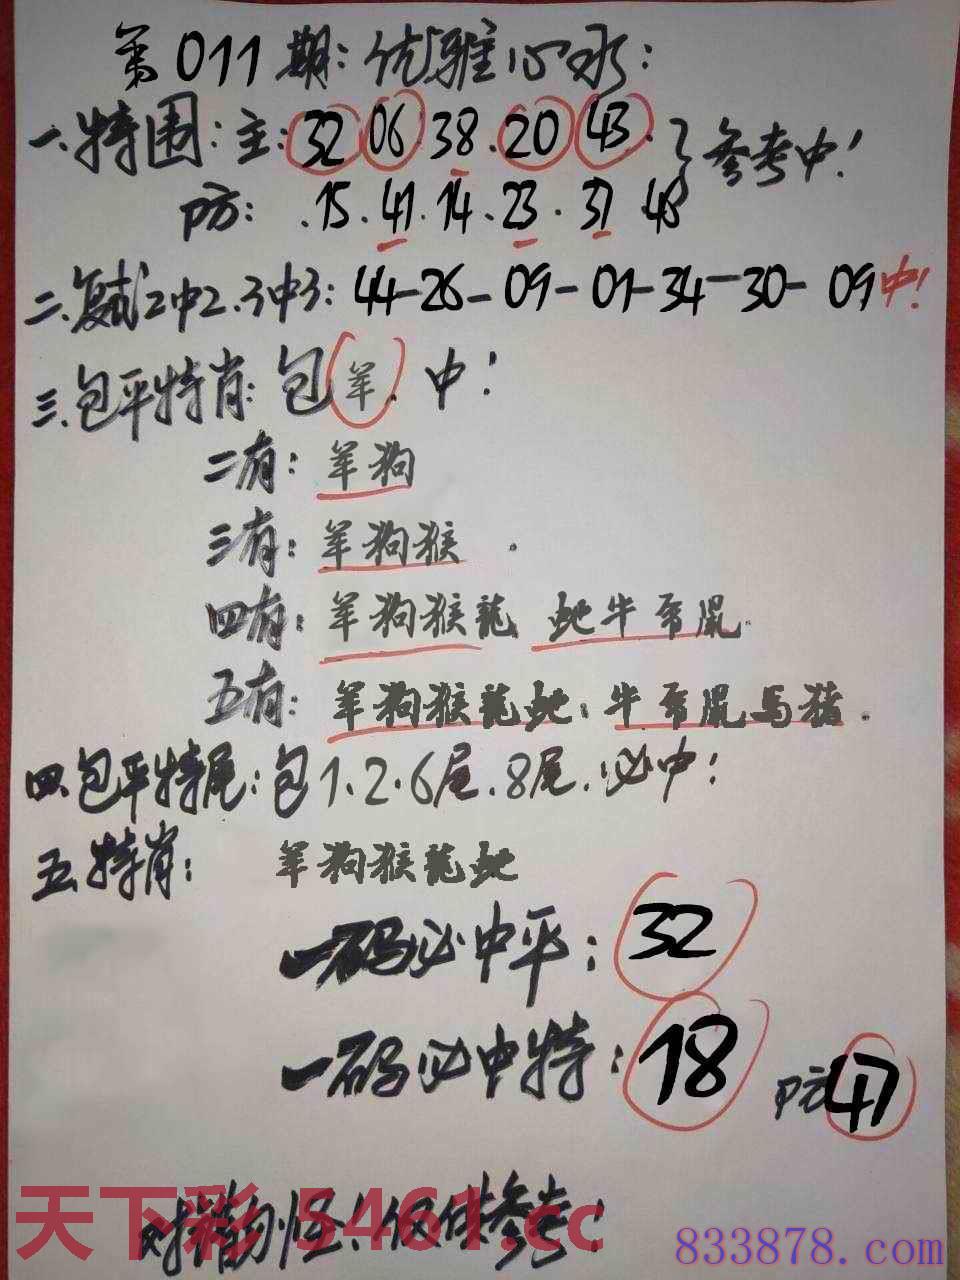 第011期:优雅心水:
一.特围:主:32 06·38·20 43·}参考中!
防:.15.41.14.23.37 48
二.复式2中2.3中3:44-26-09-01-34-30-09中!
三.包平特肖:包羊.中!
二有:羊狗
三有:羊狗猴.
四有:羊狗猴龍 蛇牛兔鼠.
五有:羊狗猴龍蛇.牛兔鼠马猪.
四.包平特尾:包1.2.6尾.8尾.必中!
五.特肖:羊狗猴龍蛇
一码必中平:32
一码必中特:18 防47
天下彩 5461.cc
错勿怪!仅供参考!
833878.com